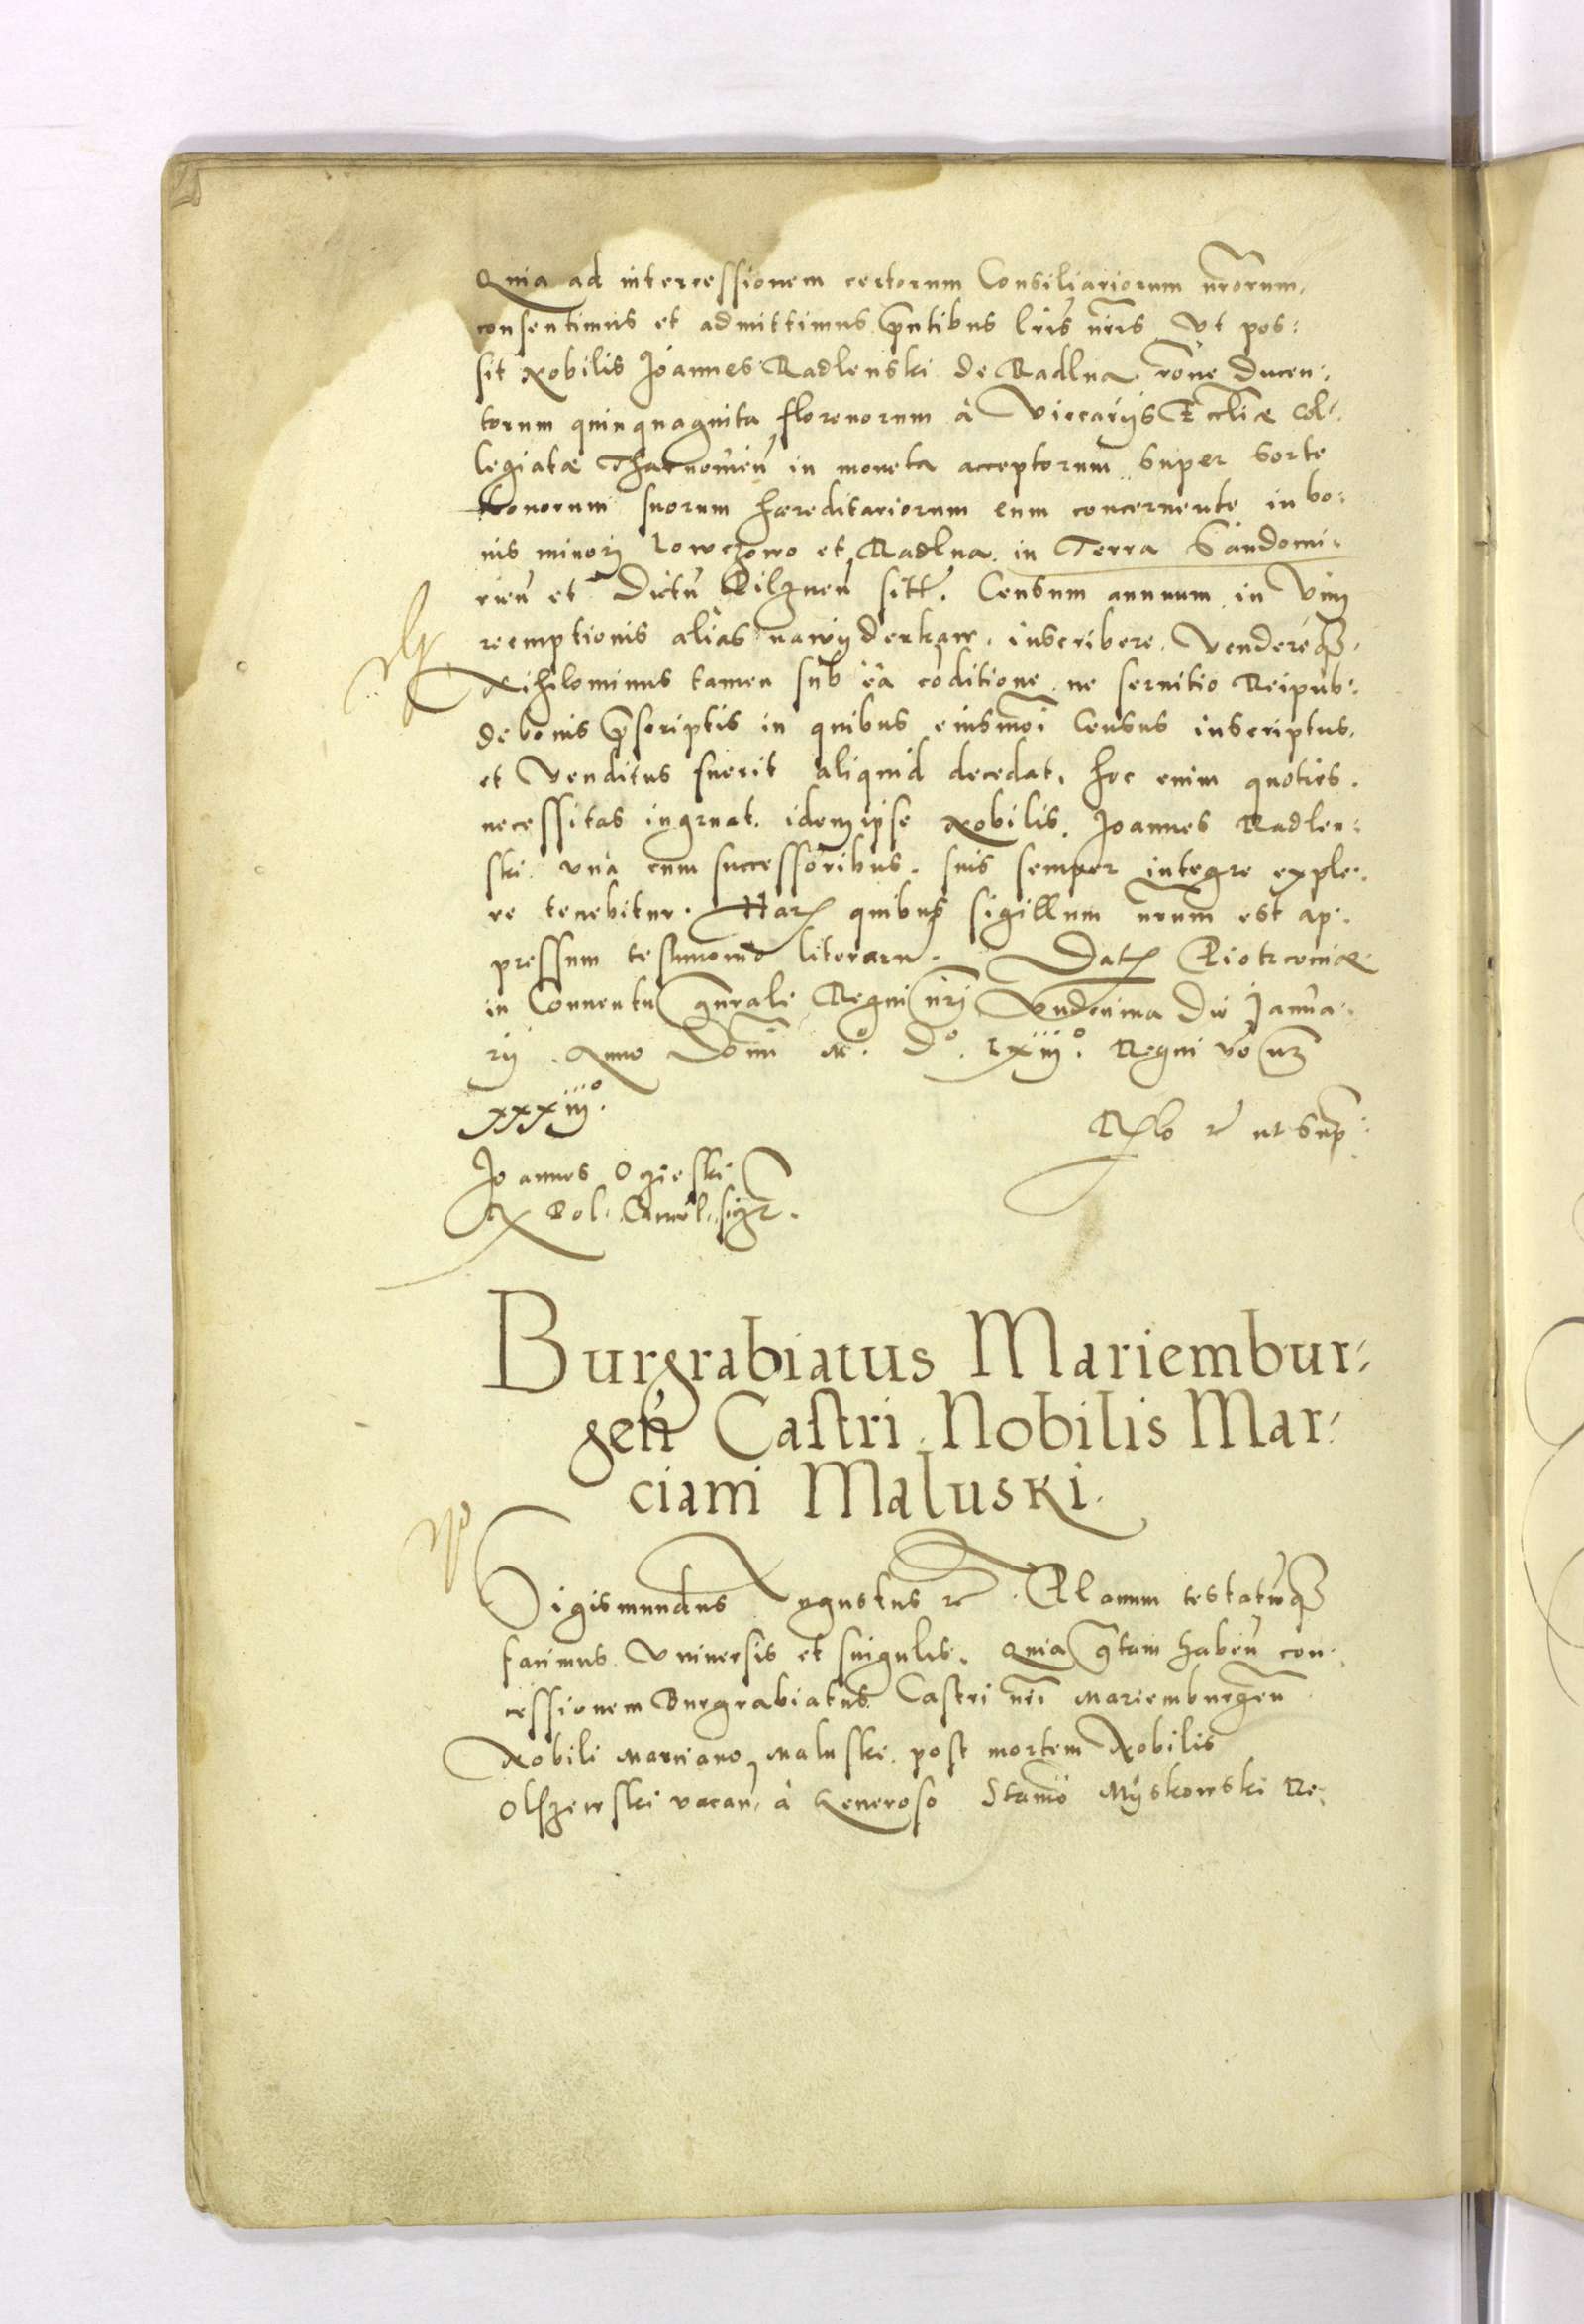 Quia ad intercessionem certorum Consiliariorum nrorum,
consentimus et admittimus pntibus lris nris Vt pos:
sit Nobilis Joannes Radlenski de Radlna rone Ducen:
torum quinquaginta florenorum à Viccarijs Eccliæ Col:
legiatæ Tharnouien in moneta acceptorum super sorte
bonorum suorum hæreditariorum eum concernente in bo:
nis minori Lowczowo et Radlna in Terra Sandomi:
rien et Dictu Pilznen sitt. Censum annuum in Vim
reemptionis alias na wyderkaw. inscribere. Vendereq3.
Nihilominus tamen sub ea coditione ne seruitio Reipub:
de bonis pscriptis in quibus eiusmoi Census inscriptus,
et Venditus fuerit aliquid decedat, hoc enim quoties.
necessitas ingruat. idem ipse Nobilis, Joannes Radlen:
ski. vnà cum successoribus. suis semper integre exple:
re tenebitur. Harz quibus sigillum nrum est ap:
pressum testimonio literaru. Datz Piotrcouiæ
in Conuentu gnrali Regni nri Vndecima Die Janua:
rij. Anno Domi M.° D.° Lxiij.° Regni vo nri
xxxiij.°
Rlo rc ut sup:
Joannes Ocieski
R Pol. Cancel. sigt.
Burgrabiatus Mariembur:
gen Castri Nobilis Mar:
ciani Maluski.
Sigismundus Augustus rc. Planum testatuq3
facimus Vniuersis et singulis. Quia gtam haben con:
cessionem Burgrabiatus Castri nri Mariemburgen
Nobili Marciano Maluski. post mortem Nobilis
Olszewski vacan. à Generoso Stanio Myskowski Re: